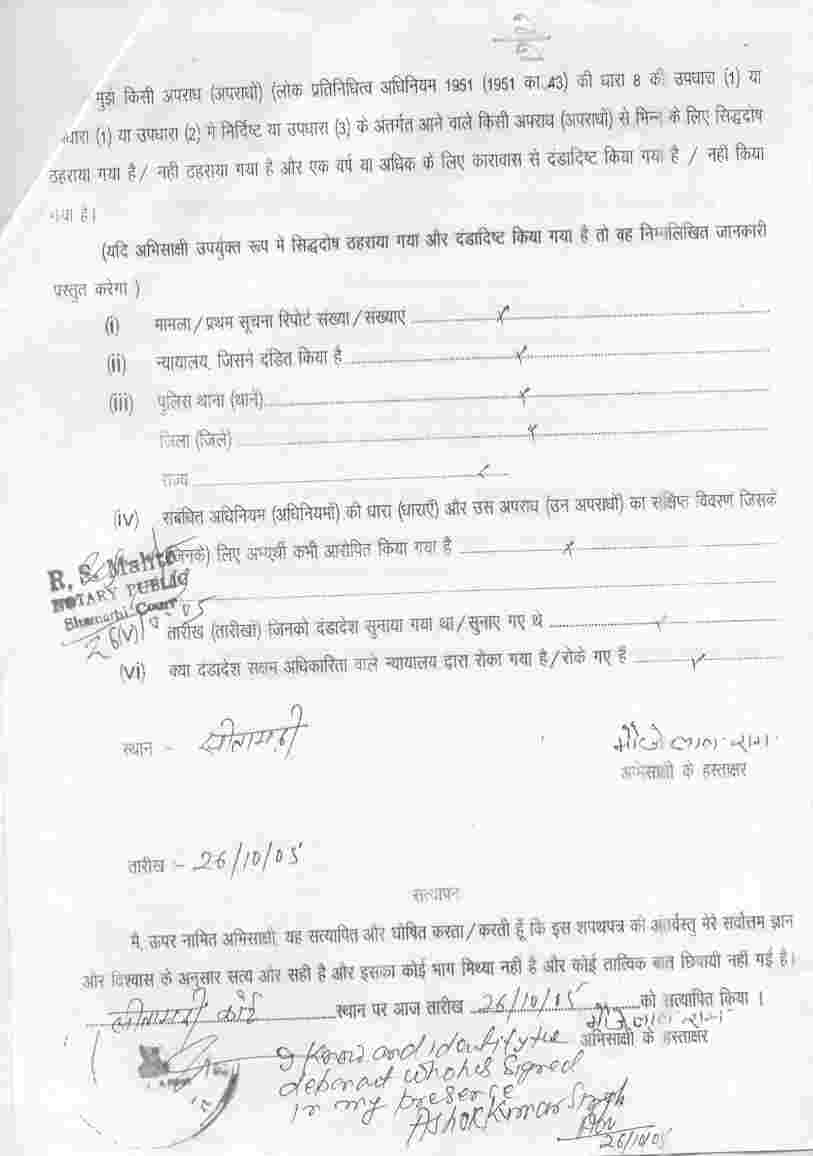 2
2
मुझे किसी अपराध (अपराधों) (लोक प्रतिनिधित्व अधिनियम 1951 (1951 का 43) की धारा 8 की उपधारा (1) या
धारा (1) या उपधारा (2) मे निर्दिष्ट या उपधारा (3) के अंतर्गत आने वाले किसी अपराध (अपराधों) से भिन्न के लिए सिद्धदोष
ठहराया गया है / नही ठहराया गया है और एक वर्ष या अधिक के लिए कारावास से दंडादिष्ट किया गया है / नहीं किया
गया है।
(यदि अभिसाक्षी उपर्युक्त रूप मे सिद्धदोष ठहराया गया और दंडादिष्ट किया गया है तो वह निम्नलिखित जानकारी
प्रस्तुत करेगा )
(i) मामला / प्रथम सूचना रिपोर्ट संख्या / संख्याएं x
(ii) न्यायालय, जिसने दंडित किया है x
(iii) पुलिस थाना (थाने) x
जिला (जिले) x
राज्य
(iv) संबंधित अधिनियम (अधिनियमों) की धारा (धाराएँ) और उस अपराध (उन अपराधों) का संक्षिप्त विवरण जिसके
(जिनके) लिए अभ्यर्थी कभी आरोपित किया गया है x
R. S. Mahto
NOTARY PUBLIC
Court
तारीख (तारीखों) जिनको दंडादेश सुनाया गया था / सुनाए गए थे
(vi) क्या दंडादेश सक्षम अधिकारिता वाले न्यायालय द्वारा रोका गया है / रोके गए हैं
स्थान - सीतामढ़ी
लाल राम
अभिसाक्षी के हस्ताक्षर
तारीख :- 26/10/05
सत्यापन
मै, ऊपर नामित अभिसाक्षी, यह सत्यापित और घोषित करता / करती हूँ कि इस शपथपत्र की अंतर्वस्तु मेरे सर्वोत्तम ज्ञान
और विश्वास के अनुसार सत्य और सही है और इसका कोई भाग मिथ्या नहीं है और कोई तात्विक बात छिपायी नहीं गई है।
सीतामढ़ी कोर्ट स्थान पर आज तारीख 26/10/05 को सत्यापित किया ।
लाल राम
अभिसाक्षी के हस्ताक्षर
I know and identify the
deponent who has signed
in my presence
Ashok Kumar Singh
Adv
26/10/05